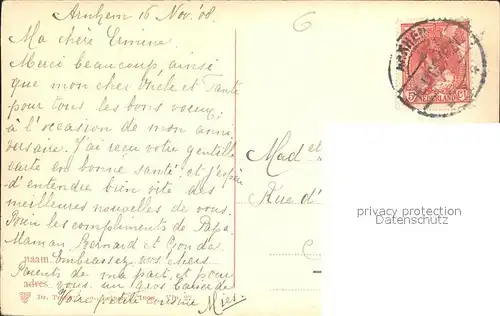 Arnhem 16 Nov. '08.
6
Ma chère Ermine.
Merci beaucoup, ainsi
que mon cher Oncle et Tante
pour tous les bons voeux
à l'occasion de mon anni
versaire. J'ai reçu votre gentille
carte en bonne santé et j'espère
d'entendre bien vite des
meilleures nouvelles de vous.
les compliments de Papa,
Maman Bernard et Gonda.
Embrassez vos chers
naam
Parents de ma part, et pour
adres
vous un gros baiser de
Votre petite cousine
Mies.
ARNHEM
5 NEDERLAND Ct
Mad et
Rue d'
privacy protection
Datenschutz